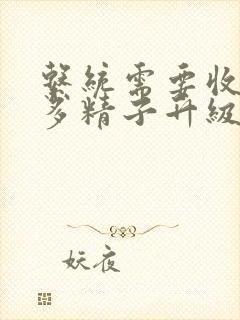 繫統需要收
多精子升級
妖夜